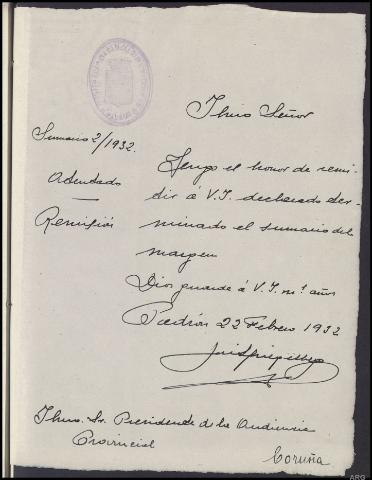 Ilmo Señor
Sumario 2/1932.
Atentado
Remisión
Tengo el honor de remi-
tir á V.I. declarado ter-
minado el sumario del
margen
Dios guarde á V.I. m.s años
Padrón 22 Febrero 1932
Ilmo. Sr. Presidente de la Audiencia
Provincial
Coruña
ARG